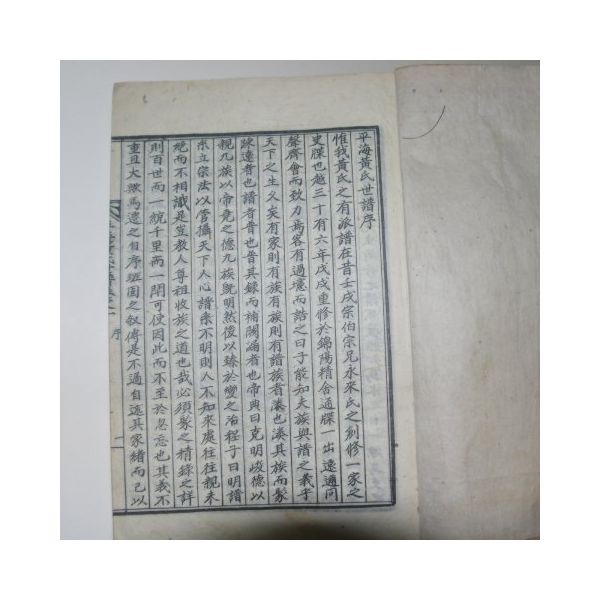 平海黃氏世譜序
惟我黃氏之有派譜在昔壬戌宗伯宗兄永來氏之創修一家之
史牒也越三十有六年戊戌重修於錦陽精舍通牒一出遠邇同
聲齊會而致力焉客有過壇而諮之曰子能知夫族與譜之義乎
天下之生久矣有家則有族有族則有譜族者湊也湊其族而髮
踈遠者也譜者普也普其錄而補闕漏者也帝典曰克明峻德以
親九族以帝堯之德九族旣明然後以臻於變之治程子曰明譜
系立宗法以管攝天下人心譜系不明則人不知來處徃徃親未
絶而不相識是豈敎人尊祖收族之道也哉必須髮之精錄之詳
則百世而一統千里而一閈可使因此而不至於忽忘也其義不
重且大歟馬遷之自序班固之叙傳是不過自述其家緖而已以
序
一